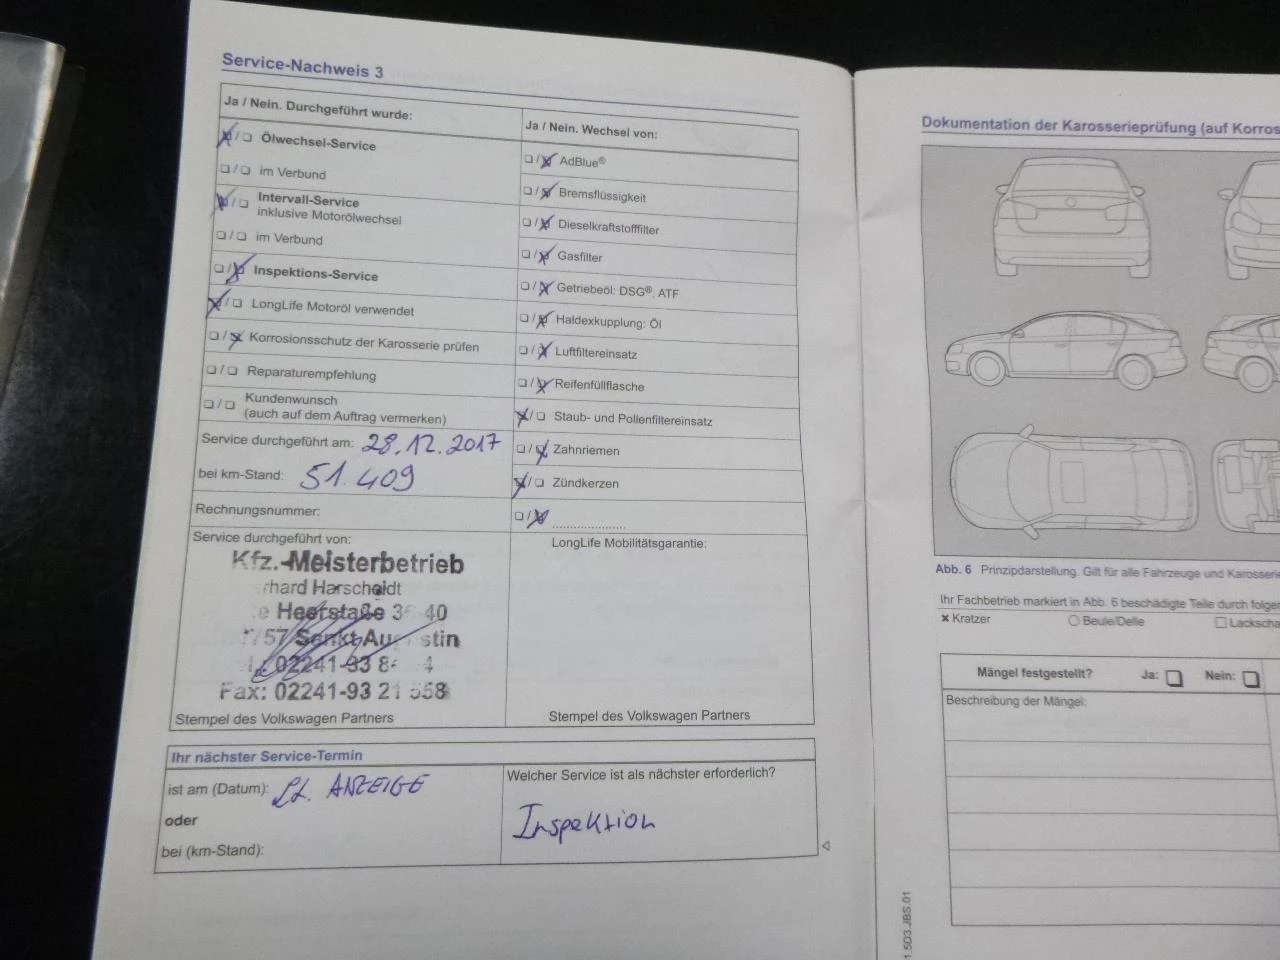 Service-Nachweis 3
Ja / Nein. Durchgeführt wurde:
Ölwechsel-Service
im Verbund
Intervall-Service
inklusive Motorölwechsel
im Verbund
Inspektions-Service
LongLife Motoröl verwendet
Korrosionsschutz der Karosserie prüfen
Reparaturempfehlung
Kundenwunsch
(auch auf dem Auftrag vermerken)
Service durchgeführt am: 28.12.2017
bei km-Stand: 51.409
Rechnungsnummer:
Service durchgeführt von:
Kfz.-Meisterbetrieb
rhard Harscheidt
Heerstaße 36 40
757 Sankt Au stin
02241-93
Fax: 02241-93 21 558
Stempel des Volkswagen Partners
Ja / Nein. Wechsel von:
AdBlue®
Bremsflüssigkeit
Dieselkraftstofffilter
Gasfilter
Getriebeöl: DSG®, ATF
Haldexkupplung: Öl
Luftfiltereinsatz
Reifenfüllflasche
Staub- und Pollenfiltereinsatz
Zahnriemen
Zündkerzen
LongLife Mobilitätsgarantie:
Stempel des Volkswagen Partners
Ihr nächster Service-Termin
ist am (Datum): Lt. ANZEIGE
oder
bei (km-Stand):
Welcher Service ist als nächster erforderlich?
Inspektion
Dokumentation der Karosserieprüfung (auf Korros
Abb. 6 Prinzipdarstellung. Gilt für alle Fahrzeuge und Karosserie
Ihr Fachbetrieb markiert in Abb. 6 beschädigte Teile durch folgen
Kratzer
Beule/Delle
Lackscha
Mängel festgestellt? Ja: Nein:
Beschreibung der Mängel:
1.5D3.JBS.01